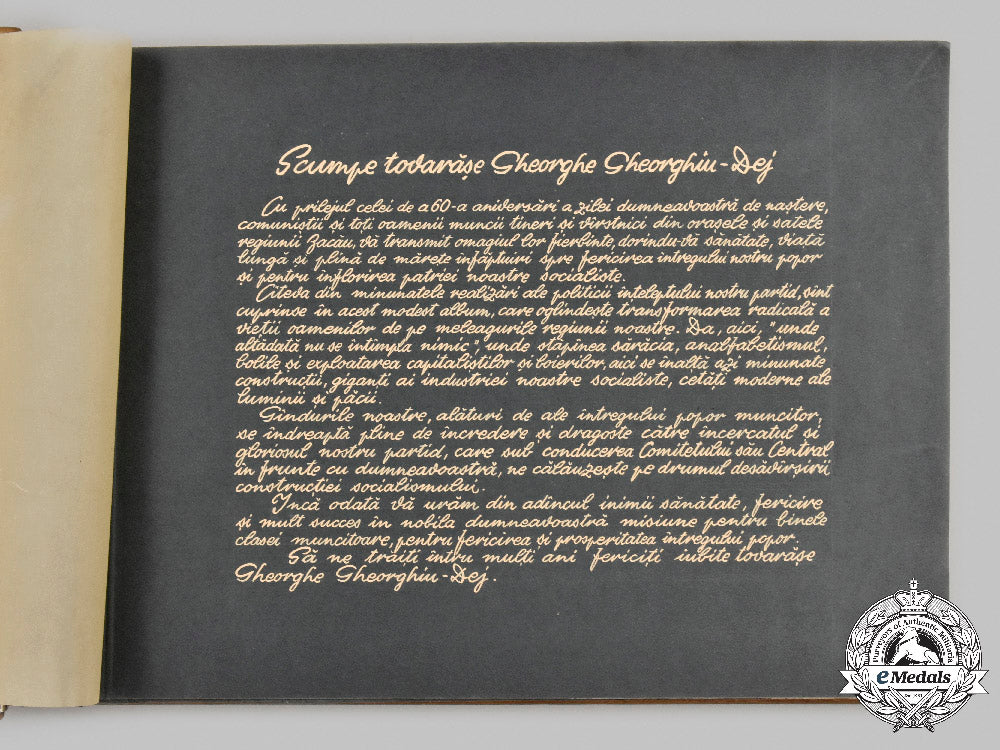 Scumpe tovarășe Gheorghe Gheorghiu-Dej
Cu prilejul celei de a 60-a aniversări a zilei dumneavoastră de naștere,
comuniștii și toți oamenii muncii tineri și vîrstnici din orașele și satele
regiunii Bacău, vă transmit omagiul lor fierbinte, dorindu-vă sănătate, viață
lungă și plină de mărețe înfăptuiri spre fericirea întregului nostru popor
și pentru înflorirea patriei noastre socialiste.
Cîteva din minunatele realizări ale politicii înțeleptului nostru partid, sînt
cuprinse în acest modest album, care oglindește transformarea radicală a
vieții oamenilor de pe meleagurile regiunii noastre. Da, aici, "unde
altădată nu se întîmpla nimic", unde stăpînea sărăcia, analfabetismul,
bolile și exploatarea capitaliștilor și boierilor, aici se înalță azi minunate
construcții, giganți ai industriei noastre socialiste, cetăți moderne ale
luminii și păcii.
Gîndurile noastre, alături de ale întregului popor muncitor,
se îndreaptă pline de încredere și dragoste către încercatul și
gloriosul nostru partid, care sub conducerea Comitetului său Central
în frunte cu dumneavoastră, ne călăuzește pe drumul desăvîrșirii
construcției socialismului.
Încă odată vă urăm din adîncul inimii sănătate, fericire
și mult succes în nobila dumneavoastră misiune pentru binele
clasei muncitoare, pentru fericirea și prosperitatea întregului popor.
Să ne trăiți întru mulți ani fericiți iubite tovarășe
Gheorghe Gheorghiu-Dej.
Purveyors of Authentic Militaria
eMedals